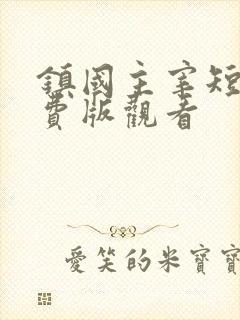 鎮國主宰短
費版觀看
愛笑的米寶寶